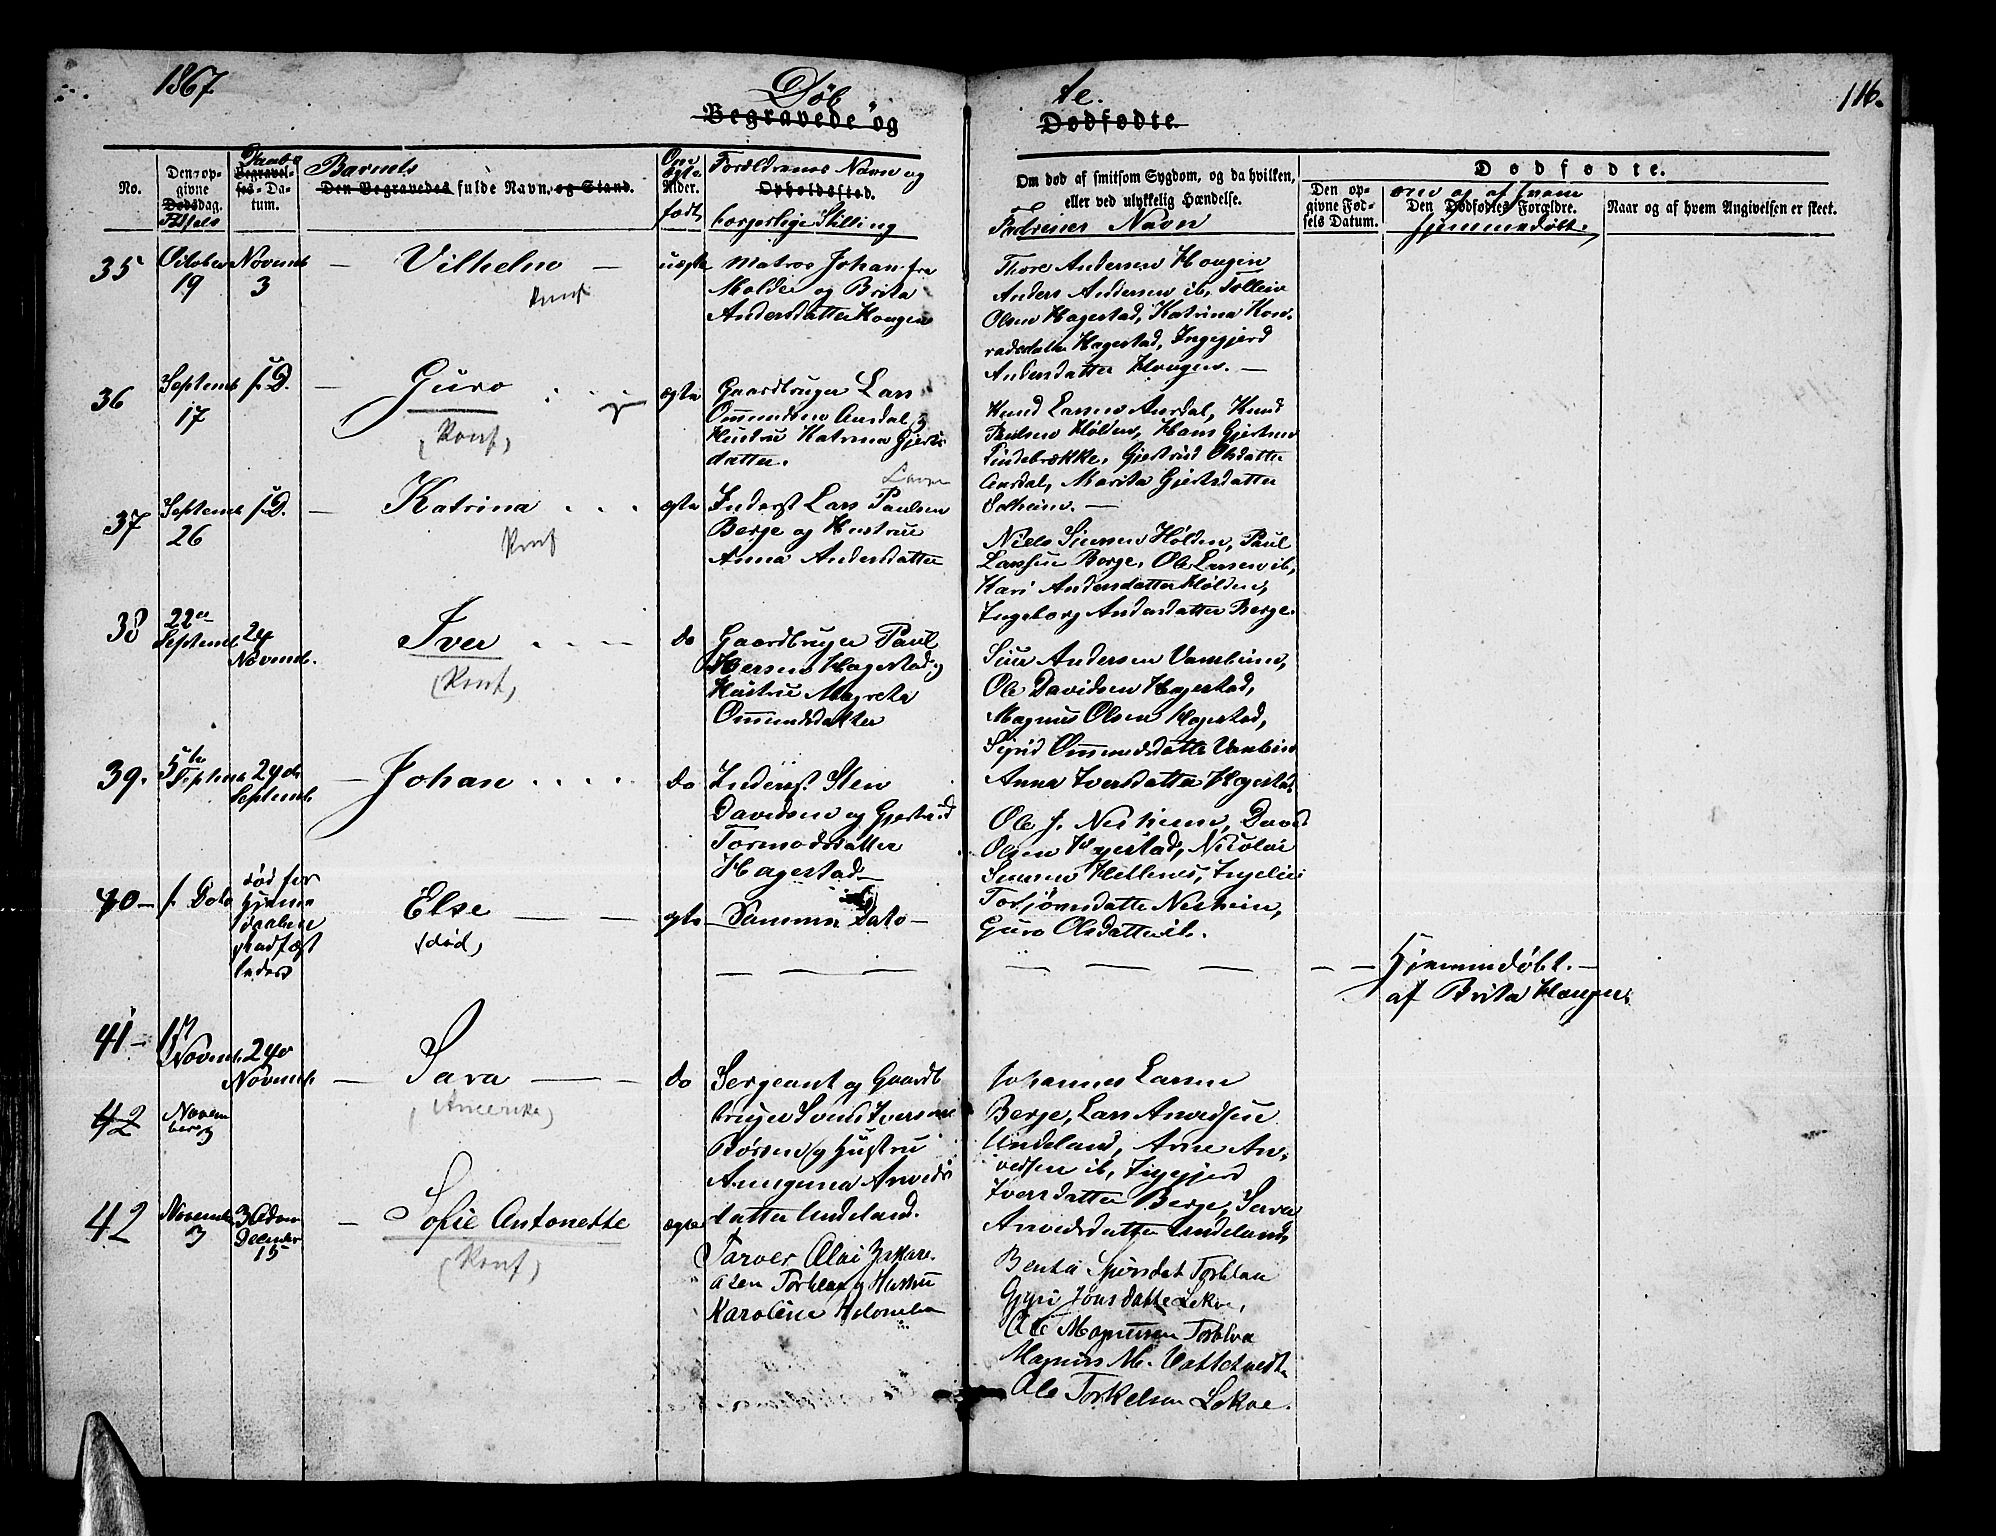 1867
Døb
te.
116.
Begravede og
Dødfødte.
No.
Den opgivne Dødsdag.
Fødsels
Daabs
Begravelses-Datum.
Barnets
Den Begravedes fulde Navn, og Stand.
Om
ægte
Alder.
født
Forældrenes Navn og
Opholdssted.
borgerlige Stilling
Om død af smitsom Sygdom, og da hvilken,
eller ved ulykkelig Hændelse.
Faddernes Navn
Dødfødte.
Den opgivne Fødsels Datum.
om og af hvem
Den Dødfødtes Forældre.
hjemmedøbt.
Naar og af hvem Angivelsen er skeet.
35
October
19
Novemb
3
— Vilhelm —
Konf
uægte
Matros Johan fra
Molde og Brita
Andersdatter Hougen
Thore Andersen Hougen
Anders Andersen ib, Tolleiv
Olsen Hagestad, Katrina Kon-
radsdatter Hagestad, Ingegjerd
Andersdatter Hougen. —
36
Septemb
17
s. D.
— Guro
(Konf)
ægte
Gaardbruger Lars
Ommundsen Aasdal og
Hustru Katrina Gjerts
datter.
Knud Larsen Aasdal, Knud
Paulsen Hølden, Hans Gjertsen
Lindebrække, Gjertrud Olsdatter
Aasdal, Marita Gjertsdatter
Solheim. —
37
Septemb
26
s. D.
— Katrina
Konf
ægte
Inderst Lars Paulsen
Berge og Hustrue
Anna Andersdatter
Niels Simsen Hølden, Paul
Larssen Berge, Ole Larsen ib,
Kari Andersdatter Hølden,
Ingeborg Andersdatter Berge.
38
22de
Septemb
24
Novemb.
Iver
(Konf)
do
Gaardbruger Paul
Iversen Hagestad og
Hustru Magreta
Ommundsdatter
Siur Andersen Vambeim,
Ole Davidsen Hagestad,
Magnus Olsen Hagestad,
Sigrid Ommundsdatter Vambeim
Anna Iversdatter Hagestad
39.
5te
Septemb
24de
Septemb.
— Johan
do
Inderst Sten
Davidsen og Gjertrud
Tormodsdatter
Hagestad —
Ole J. Nesheim, David
Olsen Hagestad, Nicolai
Simsen Hellenes, Ingeleiv
Torbjørnsdatter Nesheim,
Guro Olsdatter ib.
40 —
s. Dato
død før
hjemme
daaben
stadfæst
tedes
Else — —
(død)
ægte
— Samme Dato —
Hjemmedøbt. —
af Brita Haugen
41 —
17
Novemb.
24de
Novemb.
— Sara — —
(Amerika)
do
Sergeant og Gaardb
bruger Svend Iversen
Børsen og Hustru
Annguna Arveds
datter Undeland.
Johannes Larsen
Berge, Lars Arvedsen
Undeland, Arne Ar-
vedsen ib, Ingegjerd
Iversdatter Berge, Sara
Arvedsdatter Undeland,
42
Novem
ber 3
42
November
3
3die Adven
December
15
— Sofie Antonette
(Konf)
ægte
Farver Olai Zakari-
asen Torblaa og Hustru
Karoline
Benta Sjursdat Torblaa
Gyri Jonsdatte Lekve,
Ole Magnussen Torblaa
Magnus M. Vattetvedt
Ole Torkelsen Lekve.